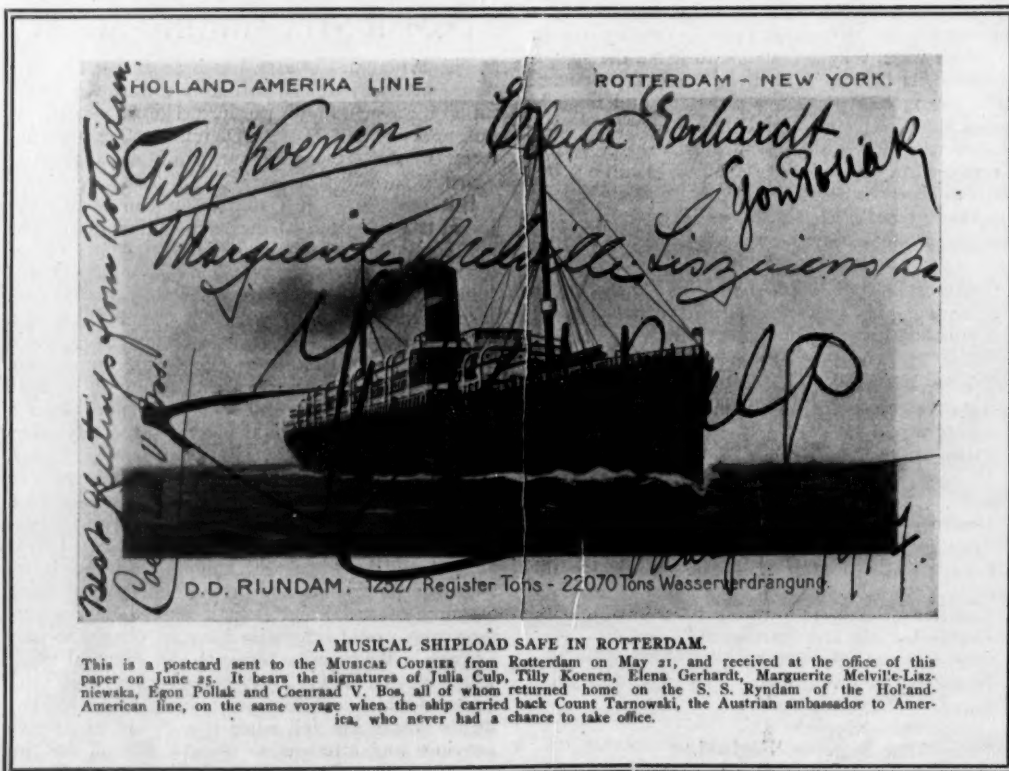 HOLLAND-AMERIKA LINIE.
ROTTERDAM - NEW YORK.
Best greetings from Rotterdam.
Tilly Koenen
Elena Gerhardt
Egon Pollak
Marguerite Melville Liszniewska
Culp
D.D. RIJNDAM. 12527 Register Tons - 22070 Tons Wasserverdrängung.
A MUSICAL SHIPLOAD SAFE IN ROTTERDAM.
This is a postcard sent to the MUSICAL COURIER from Rotterdam on May 21, and received at the office of this
paper on June 25. It bears the signatures of Julia Culp, Tilly Koenen, Elena Gerhardt, Marguerite Melvil'e-Lisz-
niewska, Egon Pollak and Coenraad V. Bos, all of whom returned home on the S. S. Ryndam of the Hol'and-
American line, on the same voyage when the ship carried back Count Tarnowski, the Austrian ambassador to Amer-
ica, who never had a chance to take office.